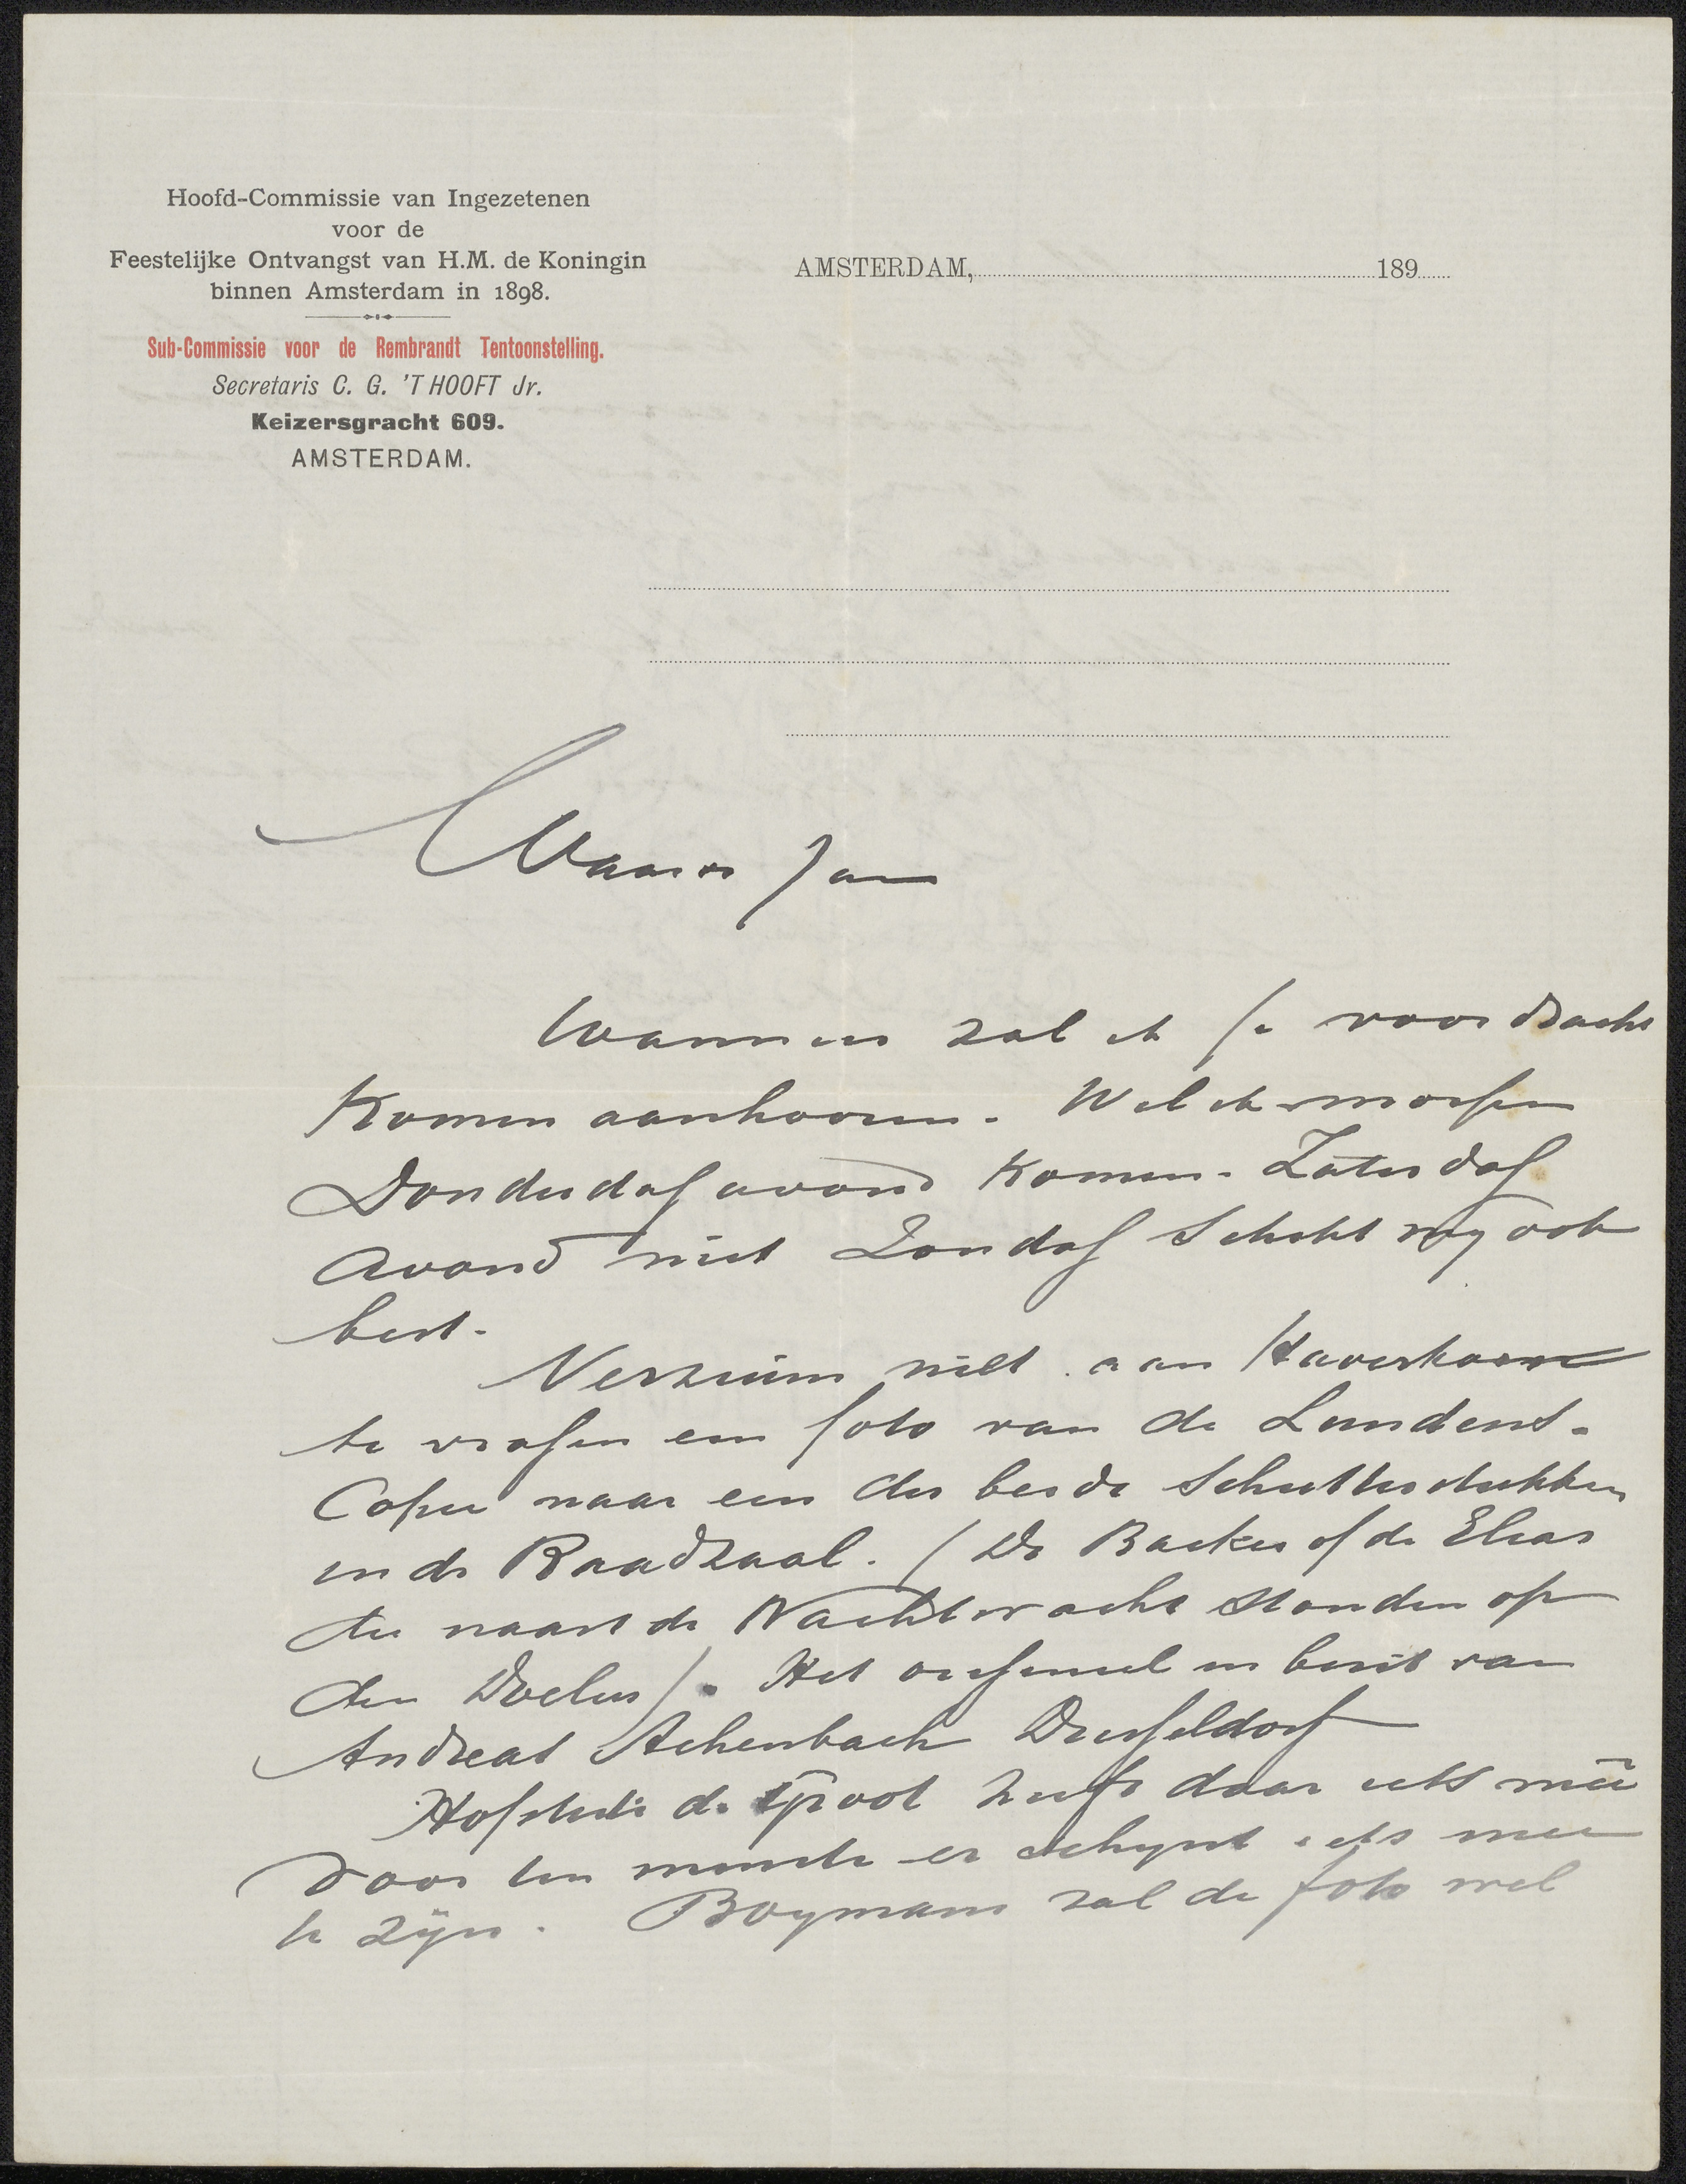 Hoofd-Commissie van Ingezetenen
voor de
Feestelijke Ontvangst van H.M. de Koningin
binnen Amsterdam in 1898.
Sub-Commissie voor de Rembrandt Tentoonstelling.
Secretaris C. G. 'T HOOFT Jr.
Keizersgracht 609.
AMSTERDAM.
AMSTERDAM, 189
Waarde Jan
Wanneer zal ik je voordracht
komen aanhooren. Wil ik morgen
Donderdag avond komen. Zaterdag
avond niet Zondag schikt my ook
best.
Verzuim niet aan Haverkorn
te vragen een foto van de Lundens-
Copie naar een der beide schuttersstukken
in de Raadzaal. (De Backer of de Elias
die naast de Nachtwacht stonden op
den Doelen). Het origineel in bezit van
Andreas Achenbach Dusseldorf
Hofstede de Groot heeft daar iets mee
voor ten minste er schynt iets mee
te zyn. Boymans zal de foto wel